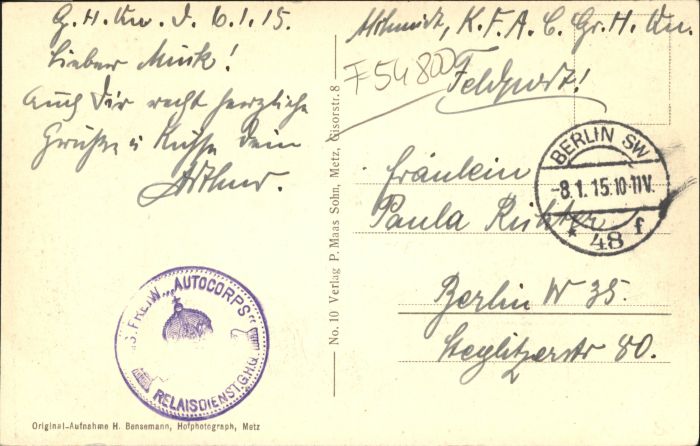 G. H. Qu. d. 6.1.15.
Lieber Muck!
Auch Dir recht herzliche
Grüsse u Küsse Dein
Arthur.
ASchmidt, K.F.A.C. Gr. H. Qu.
F54800
Feldpost!
Fräulein
Paula Richter
Berlin W 35.
Steglitzerstr 80.
BERLIN SW
-8.1.15.10-11V.
* 48 f
No. 10 Verlag P. Maas Sohn, Metz, Gisorstr. 8
FREIW. AUTOCORPS
RELAISDIENST. G.H.Q.
Original-Aufnahme H. Bensemann, Hofphotograph, Metz